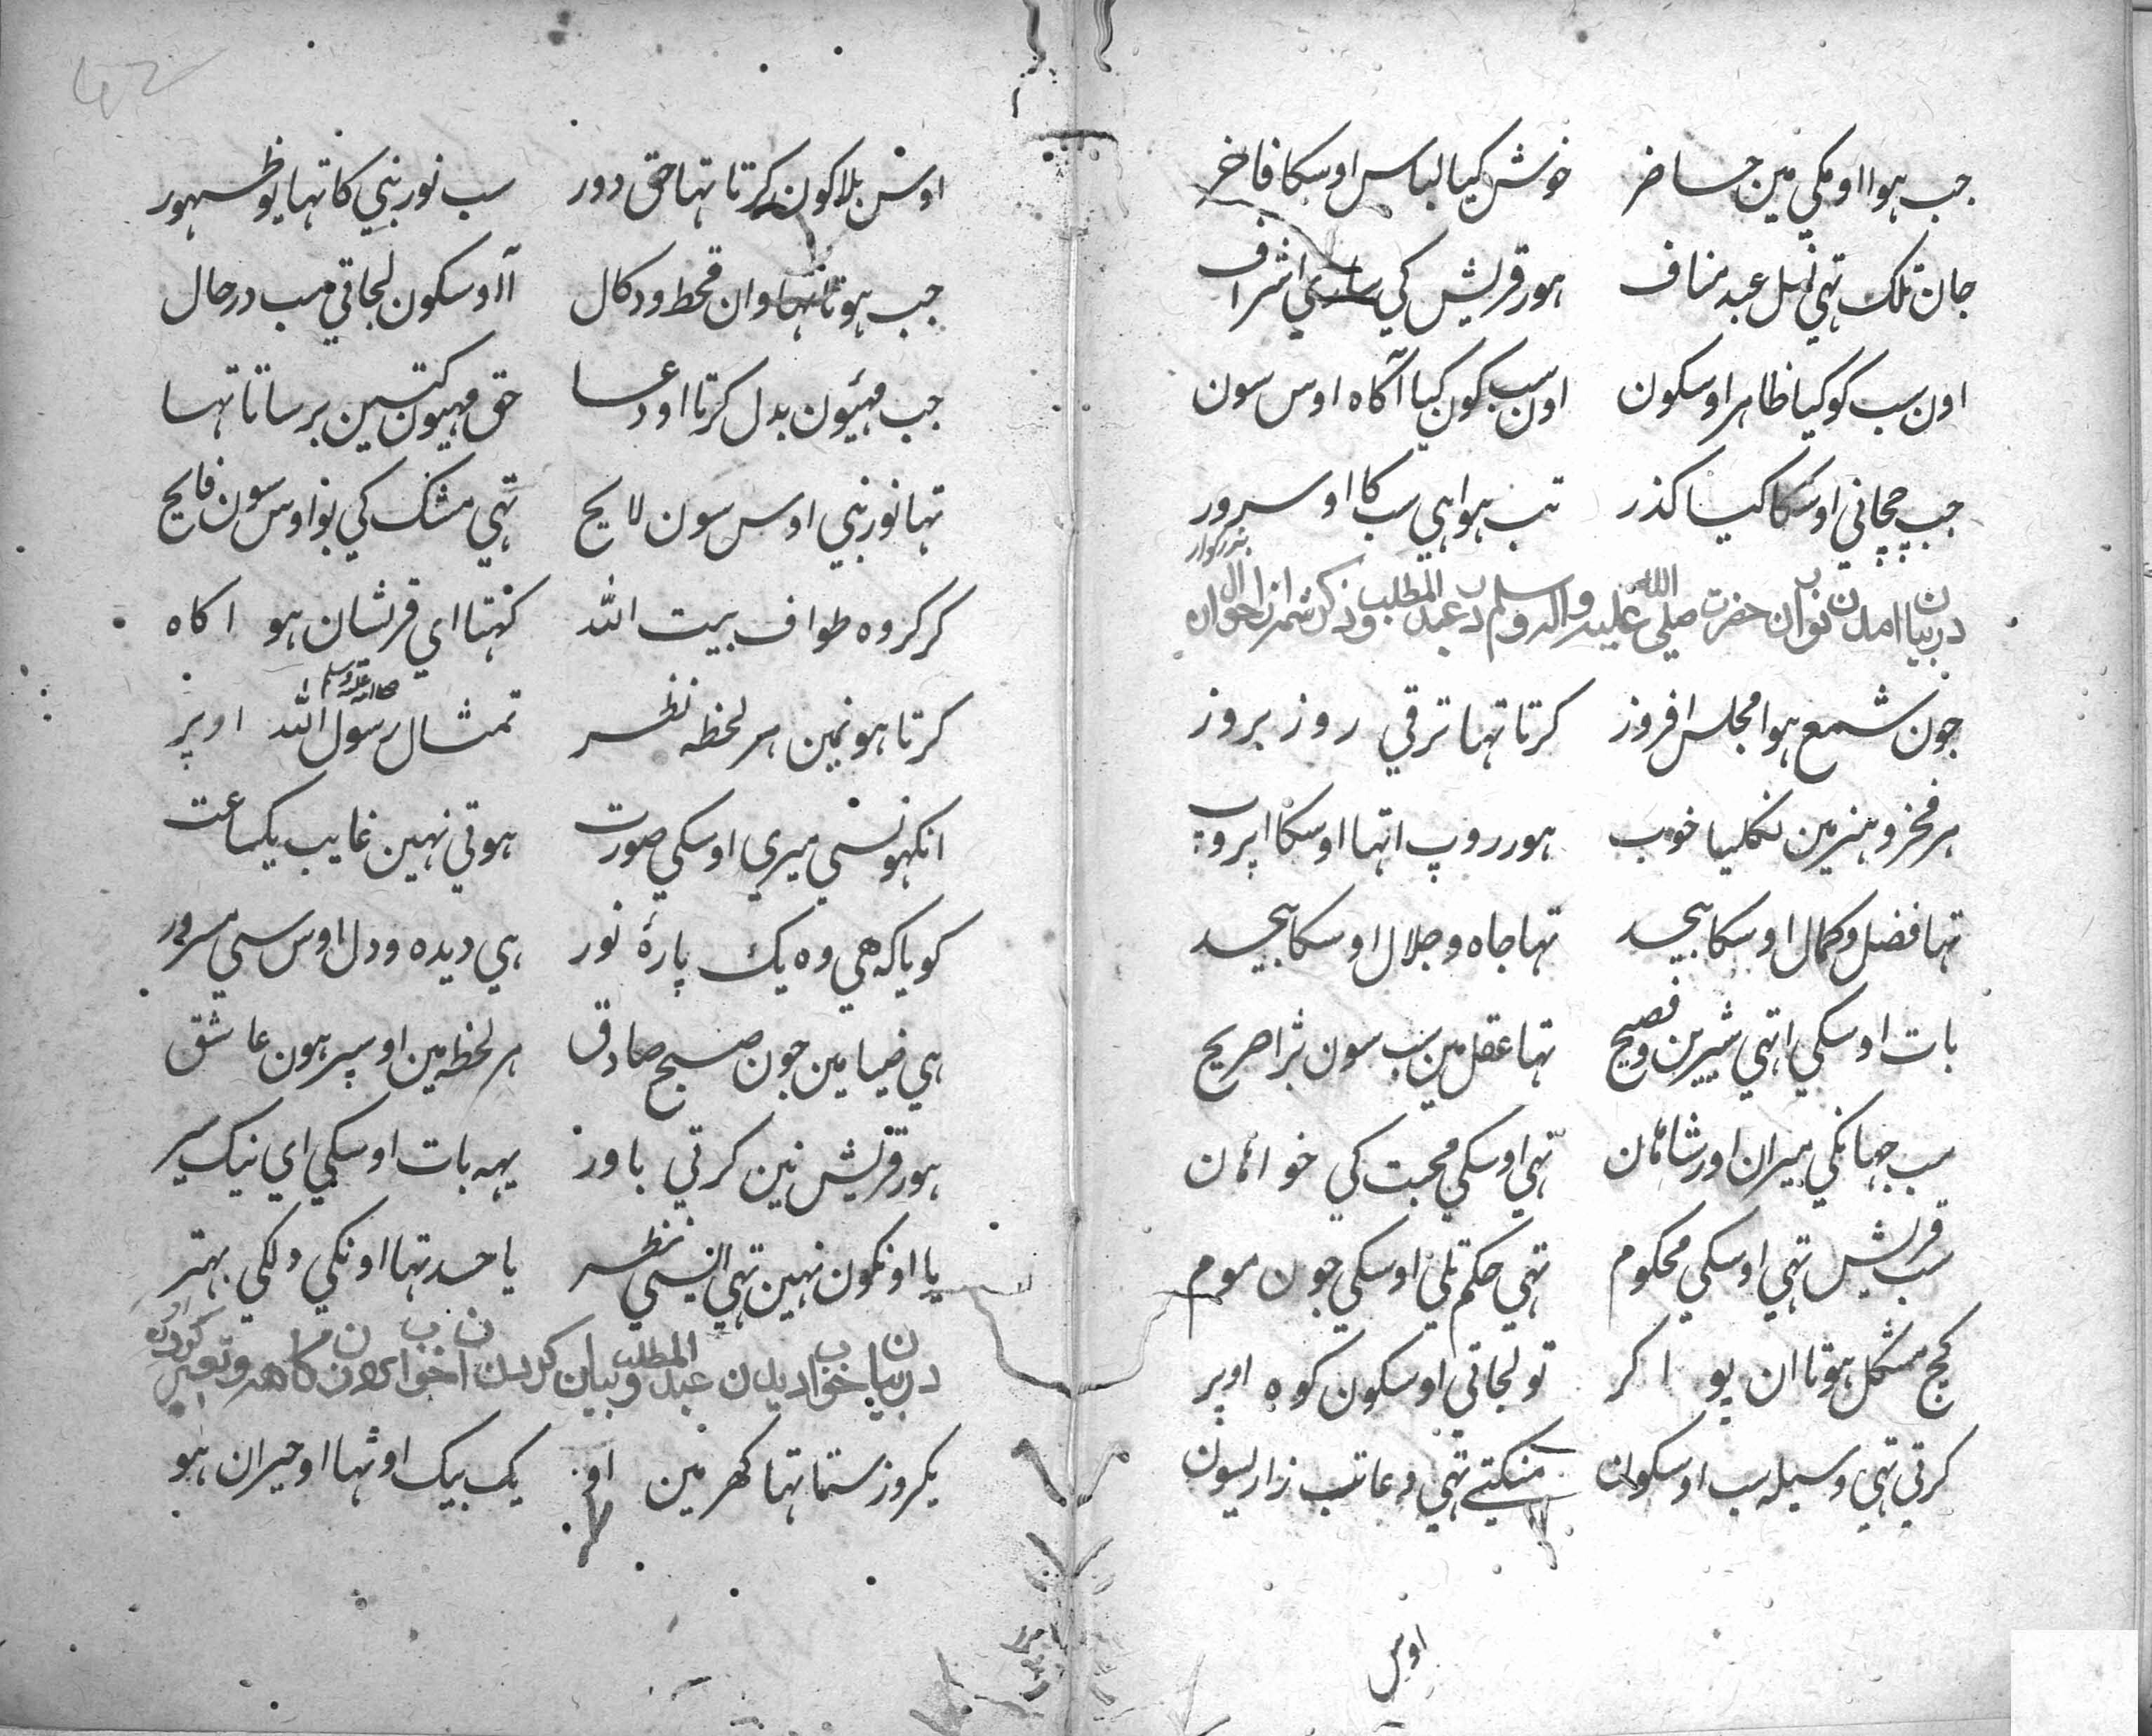 جب ہوا او مکي مين حاضر خوش کيا لباس اوسکا فاخر
جان تلک تہي نسل عبد مناف ہور قريش کي ساري اشراف
اون سب کو کيا ظاہر اوسکون اون سب کون کيا آگاہ اوس سون
جب چچاني اوسکا کيا گذر تب ہوا ہي سب کا او سرور
در بيان امدن نور ان حضرت صلي الله عليه واله وسلم در عبد المطلب و ذکر شمہ از احوال ان بزرکوار
جون شمع ہوا مجلس افروز کرتا تہا ترقي روز بروز
ہر فخر و ہنر مين نکليا خوب ہور روپ اتہا اوسکا اپروپ
تہا فضل و کمال اوسکا بيحد تہا جاہ و جلال اوسکا بيحد
بات اوسکي اتہي شيرين و فصيح تہا عقل مين سب سون بڑا صريح
سب جہانکي ميران اور شاہان تہي اوسکي محبت کي خواہان
سب قريش تہي اوسکي محکوم تہي حکم تلي اوسکي جون موم
کچ مشکل ہوتا ان پو اکر تو لجاتي اوسکون کوہ اوپر
کرتي تہي وسيلہ سب اوسکون منکتے تہي دعا تب زاري سون
اوس
اوس بلا کون کرتا تہا حق دور سب نور نبي کا تہا يو ظہور
جب ہوتا تہا وان قحط و دکال آ اوسکون لجاتي سب درحال
جب مہيون بدل کرتا او دعا حق مہيون کتين برساتا تہا
تہا نور نبي اوس سون لايح تہي مشک کي بو اوس سون فايح
کر کر وہ طواف بيت الله کہتا اي قريشان ہو اکاہ
کرتا ہونمين ہر لحظہ نظر تمثال رسول الله صلي الله عليه وسلم اوپر
انکہونسي ميري اوسکي صورت ہوتي نہين غايب يکساعت
کويا کہ هي وہ يک پارۂ نور ہي ديدہ و دل اوس سي مسرور
ہي ضيا مين جون صبح صادق ہر لحظہ مين اوسپر ہون عاشق
ہور قريش نين کرتي باور يہہ بات اوسکي اي نيک سير
يا اونکون نہين تہي السي نظر يا حسد تہا اونکي دلکي بہتر
در بيان خواب ديدن عبد المطلب و بيان کردن ان خواب
يکروز ستا تہا کہر مين او يک بيک اوٹہا او حيران ہو